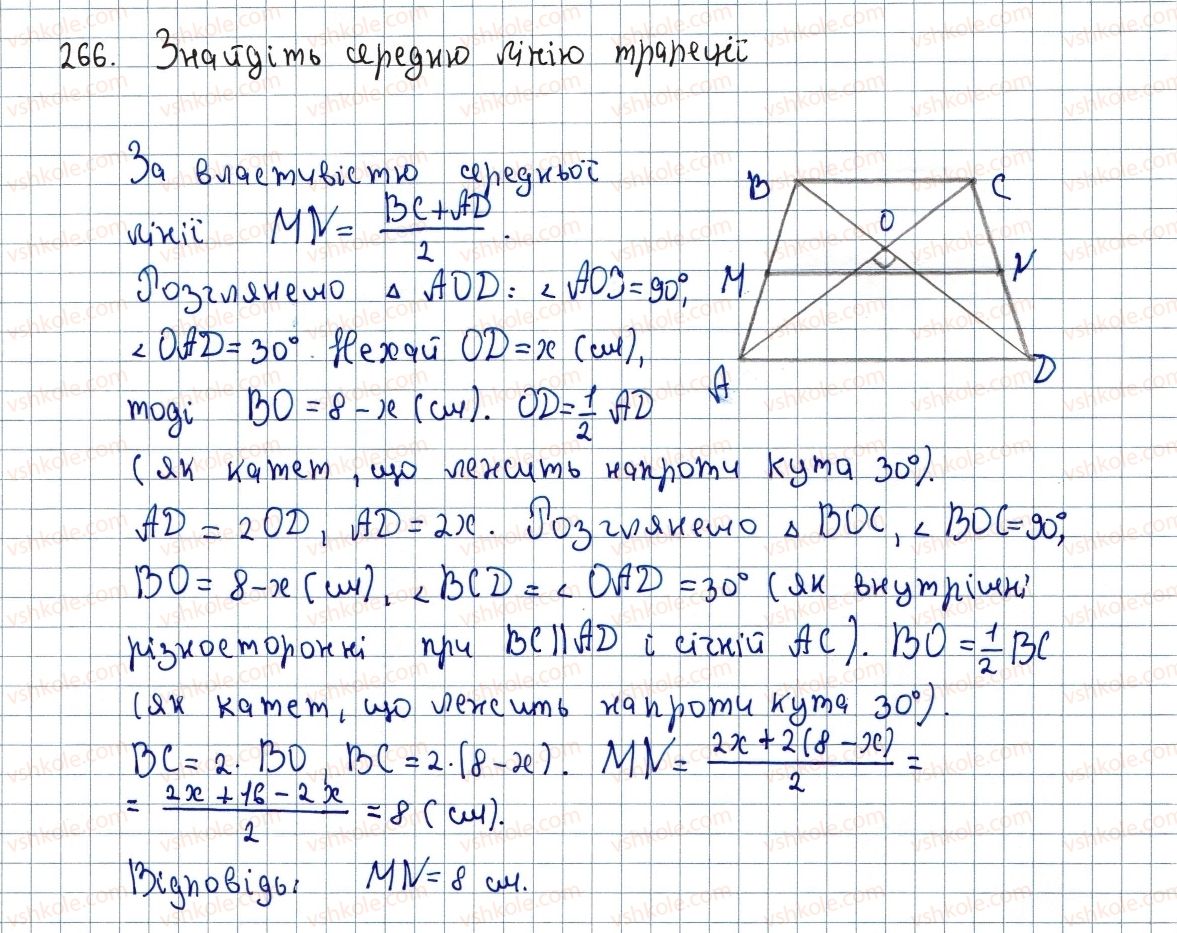 266. Знайдіть середню лінію трапеції
За властивістю середньої
лінії MN = (BC + AD)/2.
Розглянемо △ AOD: ∠ AOЗ = 90°,
∠ OAD = 30°. Нехай OD = x (см),
тоді BO = 8 - x (см). OD = 1/2 AD
(як катет, що лежить напроти кута 30°).
AD = 2OD, AD = 2x. Розглянемо △ BOC, ∠ BOC = 90°,
BO = 8 - x (см), ∠ BCD = ∠ OAD = 30° (як внутрішні
різносторонні при BC || AD і січній AC). BO = 1/2 BC
(як катет, що лежить напроти кута 30°).
BC = 2 · BO, BC = 2 · (8 - x). MN = (2x + 2(8 - x))/2 =
= (2x + 16 - 2x)/2 = 8 (см).
Відповідь: MN = 8 см.
B
C
O
M
N
A
D
vshkole.com